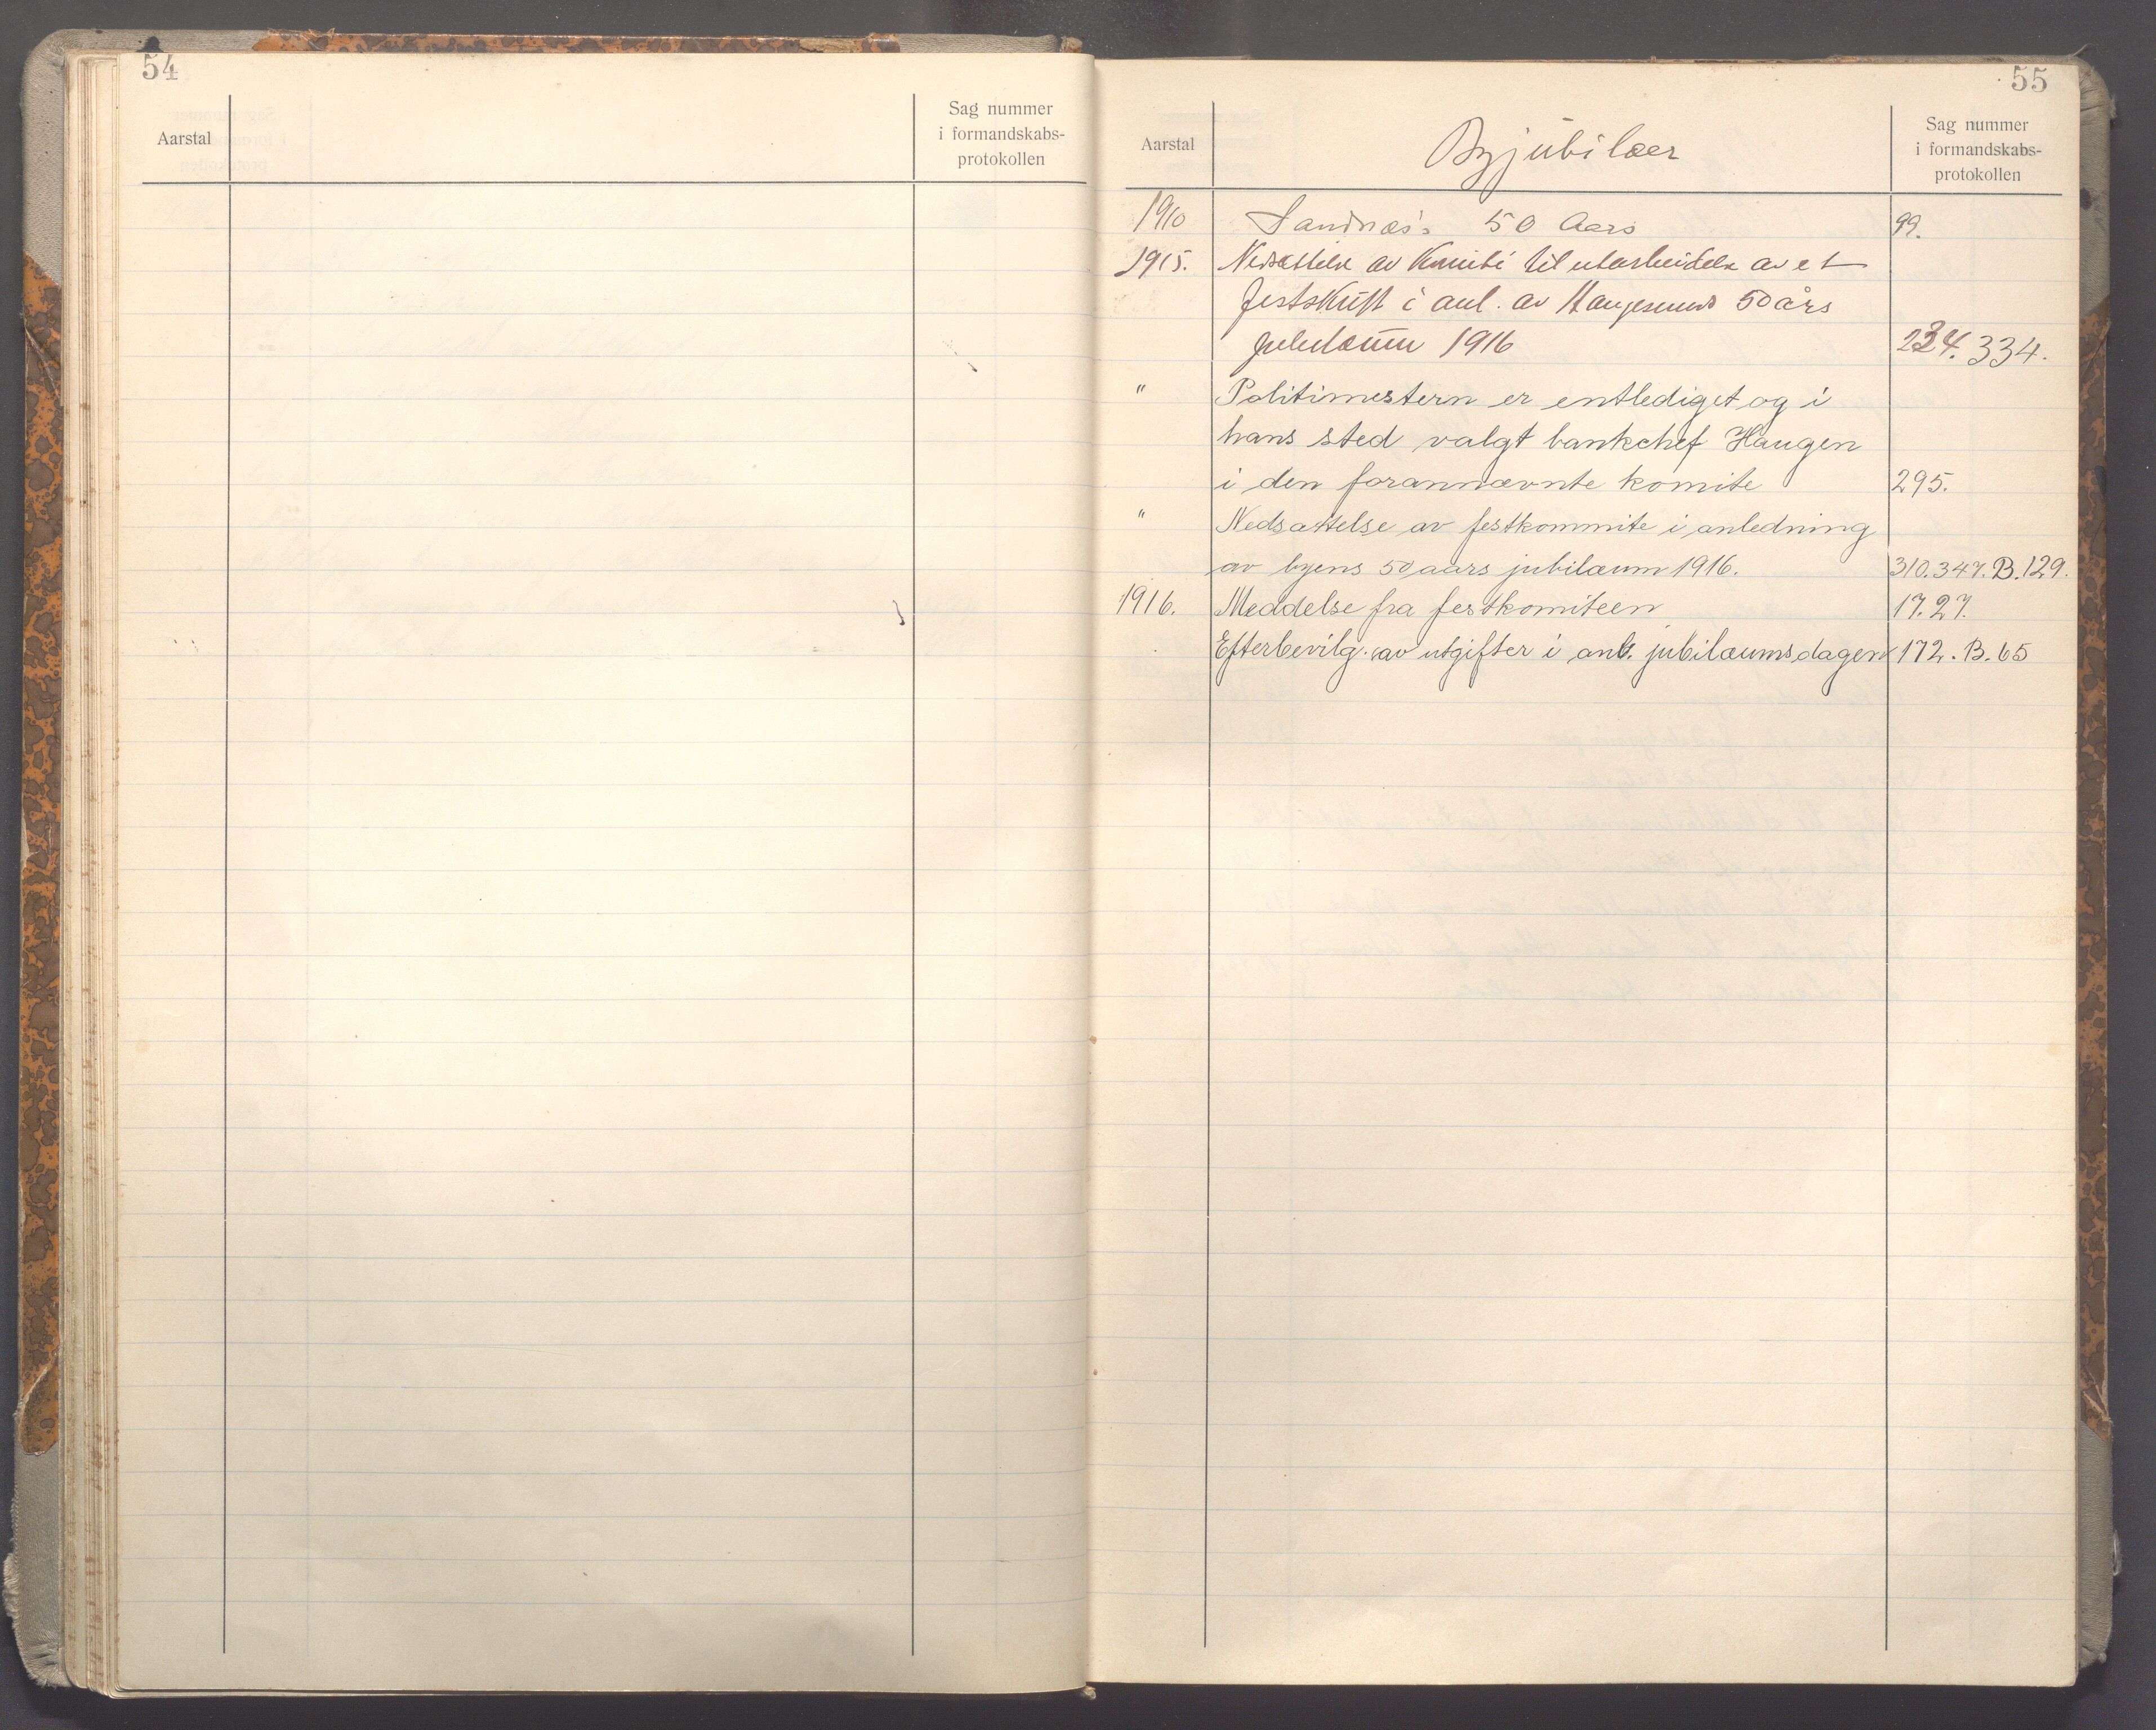 54
Aarstal
Sag nummer
i formandskabs-
protokollen
55
Aarstal
Byjubilæer
Sag nummer
i formandskabs-
protokollen
1910 Sandnæs. 50 Aars 99.
1915. Nedsættelse av Komité til utarbeidelse av et
festskrift i anl. av Haugesunds 50 års
jubilæum 1916 234. 334.
" Politimestern er entlediget og i
hans sted valgt bankchef Haugen
i den forannævnte komite 295.
" Nedsættelse av festkommite i anledning
av byens 50 aars jubilæum 1916. 310. 347. B. 129.
1916. Meddelse fra festkomiteen 17. 27.
Efterbevilg. av utgifter i anl. jubilæumsdagen 172. B. 65